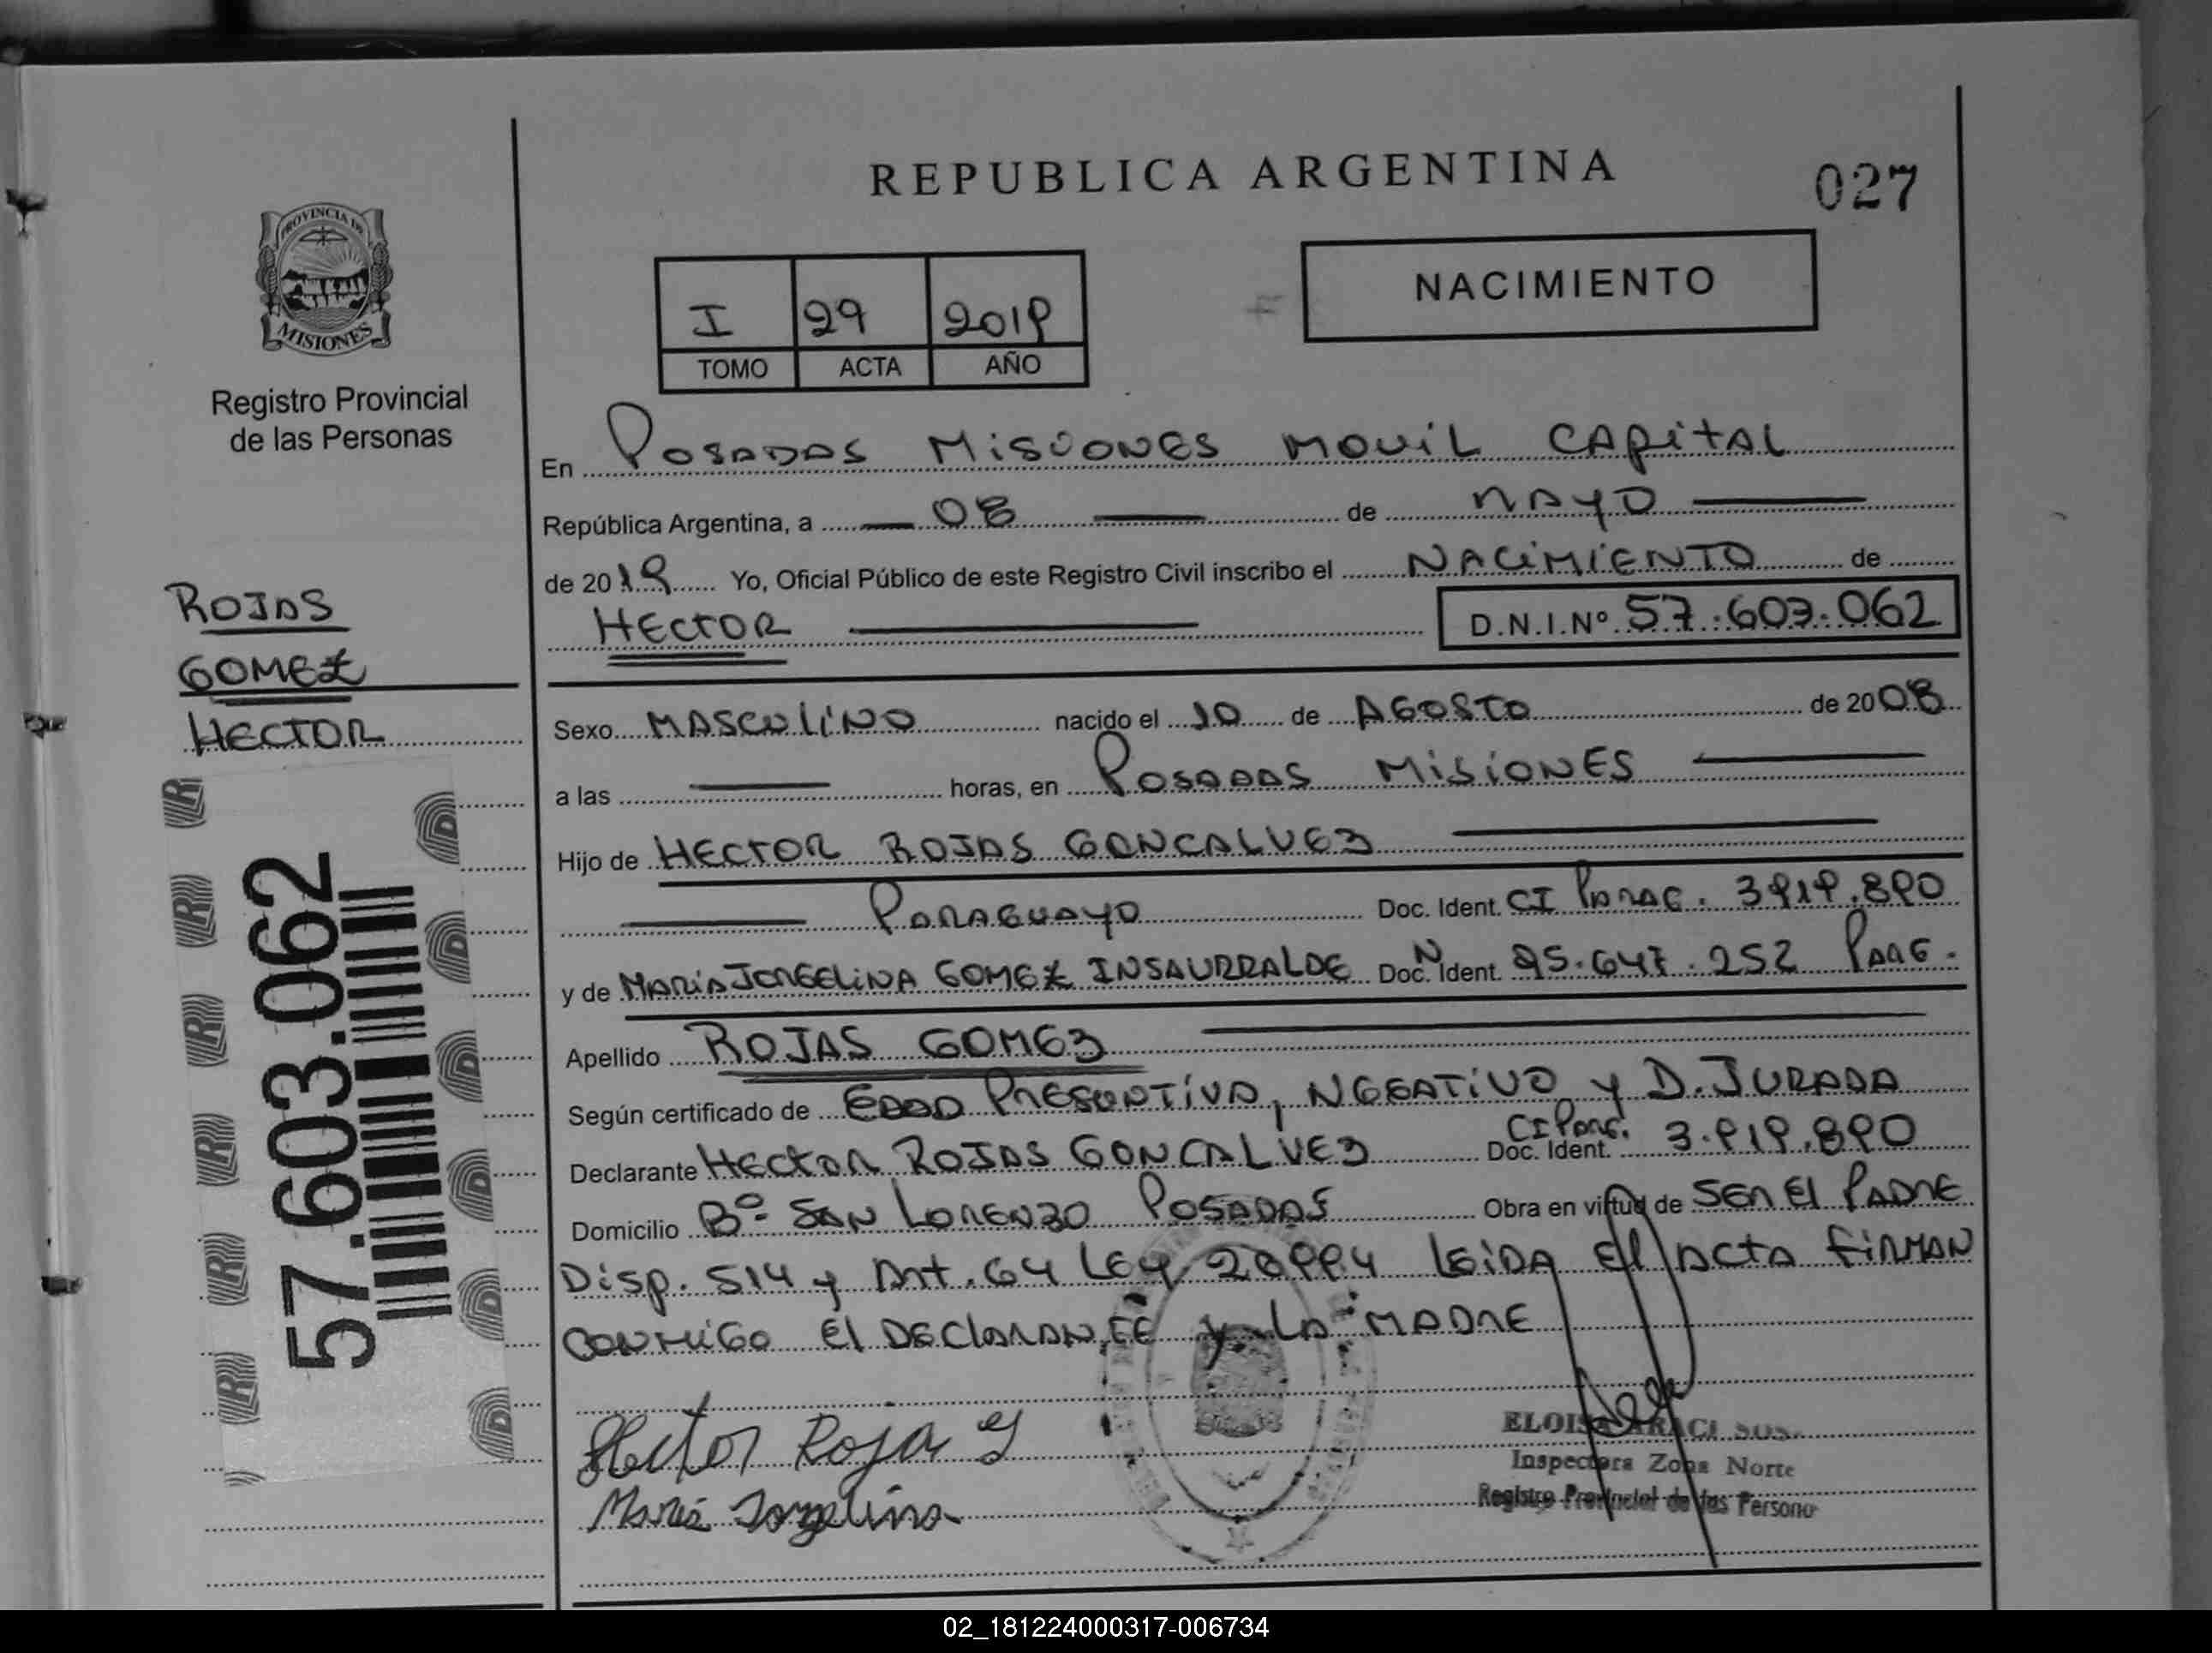 REPUBLICA ARGENTINA
027
PROVINCIA DE
MISIONES
Registro Provincial
de las Personas
I 29 2019
TOMO ACTA AÑO
NACIMIENTO
En POSADAS MISIONES MOVIL CAPITAL
República Argentina, a 08 de MAYO
de 2019 Yo, Oficial Público de este Registro Civil inscribo el NACIMIENTO de
HECTOR D.N.I.Nº 57.603.062
ROJAS
GOMEZ
HECTOR
57.603.062
Sexo MASCULINO nacido el 10 de AGOSTO de 2008
a las horas, en POSADAS MISIONES
Hijo de HECTOR ROJAS GONCALVEZ
PARAGUAYO Doc. Ident. CI PARAG. 3919.890
y de MARIA JORGELINA GOMEZ INSAURRALDE Doc. Ident. 95.647.252 PARG.
Apellido ROJAS GOMEZ
Según certificado de EDAD PRESUNTIVA, NGEATIVO y D. JURADA
Declarante HECTOR ROJAS GONCALVEZ Doc. Ident. CI PARG. 3.919.890
Domicilio Bº SAN LORENZO POSADAS Obra en virtud de SER El PADRE
Disp. 514 y Art. 64 LEY 26994 LEIDA El ACTA FIRMAN
CONMIGO El DEClARANTE y LA MADRE
Hector Rojas G
María Jorgelina
ELOISA ARACI SOS
Inspectora Zona Norte
Registro Provincial de las Persona
02_181224000317-006734